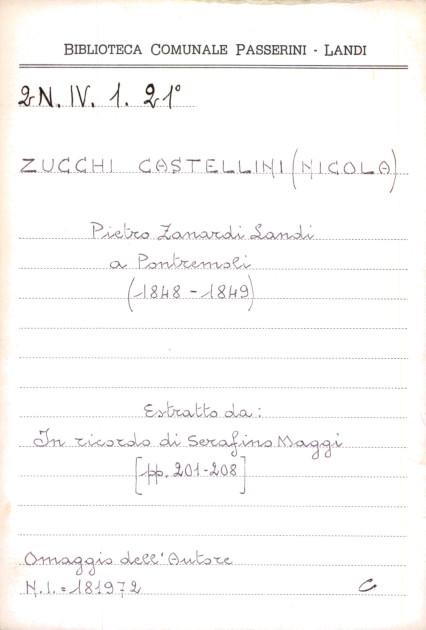 BIBLIOTECA COMUNALE PASSERINI - LANDI
2N. IV. 1. 21°
ZUCCHI CASTELLINI (NICOLA)
Pietro Zanardi Landi
a Pontremoli
(1848 - 1849)
Estratto da:
In ricordo di Serafino Maggi
[pp. 201-208]
Omaggio dell'Autore
N.I. = 181972 C